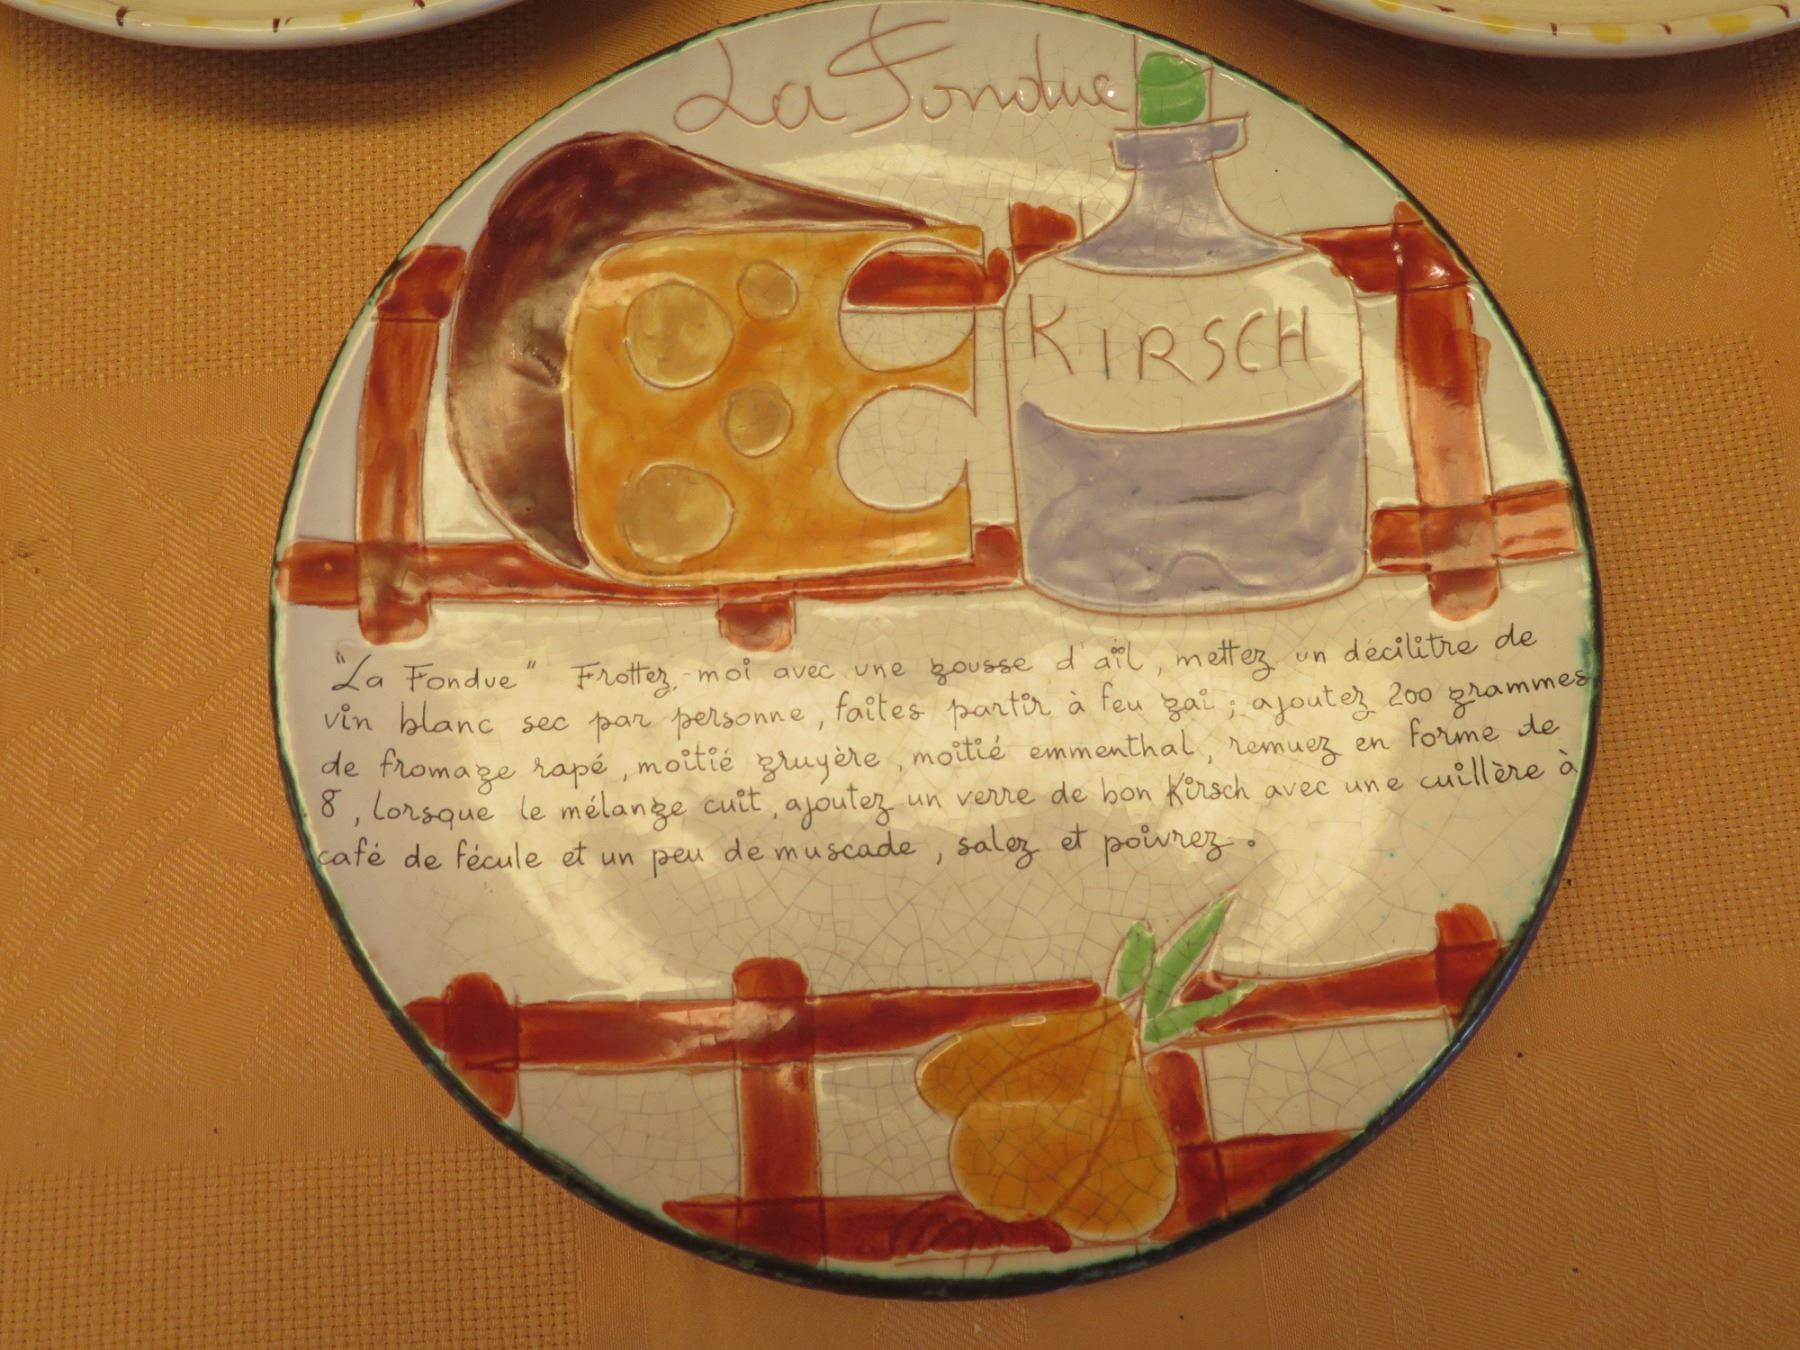 La Fondue
KIRSCH
"La Fondue" Frottez-moi avec une gousse d'aïl, mettez un décilitre de
vin blanc sec par personne, faites partir à feu gai ; ajoutez 200 grammes
de fromage rapé, moitié gruyère, moitié emmenthal, remuez en forme de
8, lorsque le mélange cuit, ajoutez un verre de bon Kirsch avec une cuillère à
café de fécule et un peu de muscade, salez et poivrez.